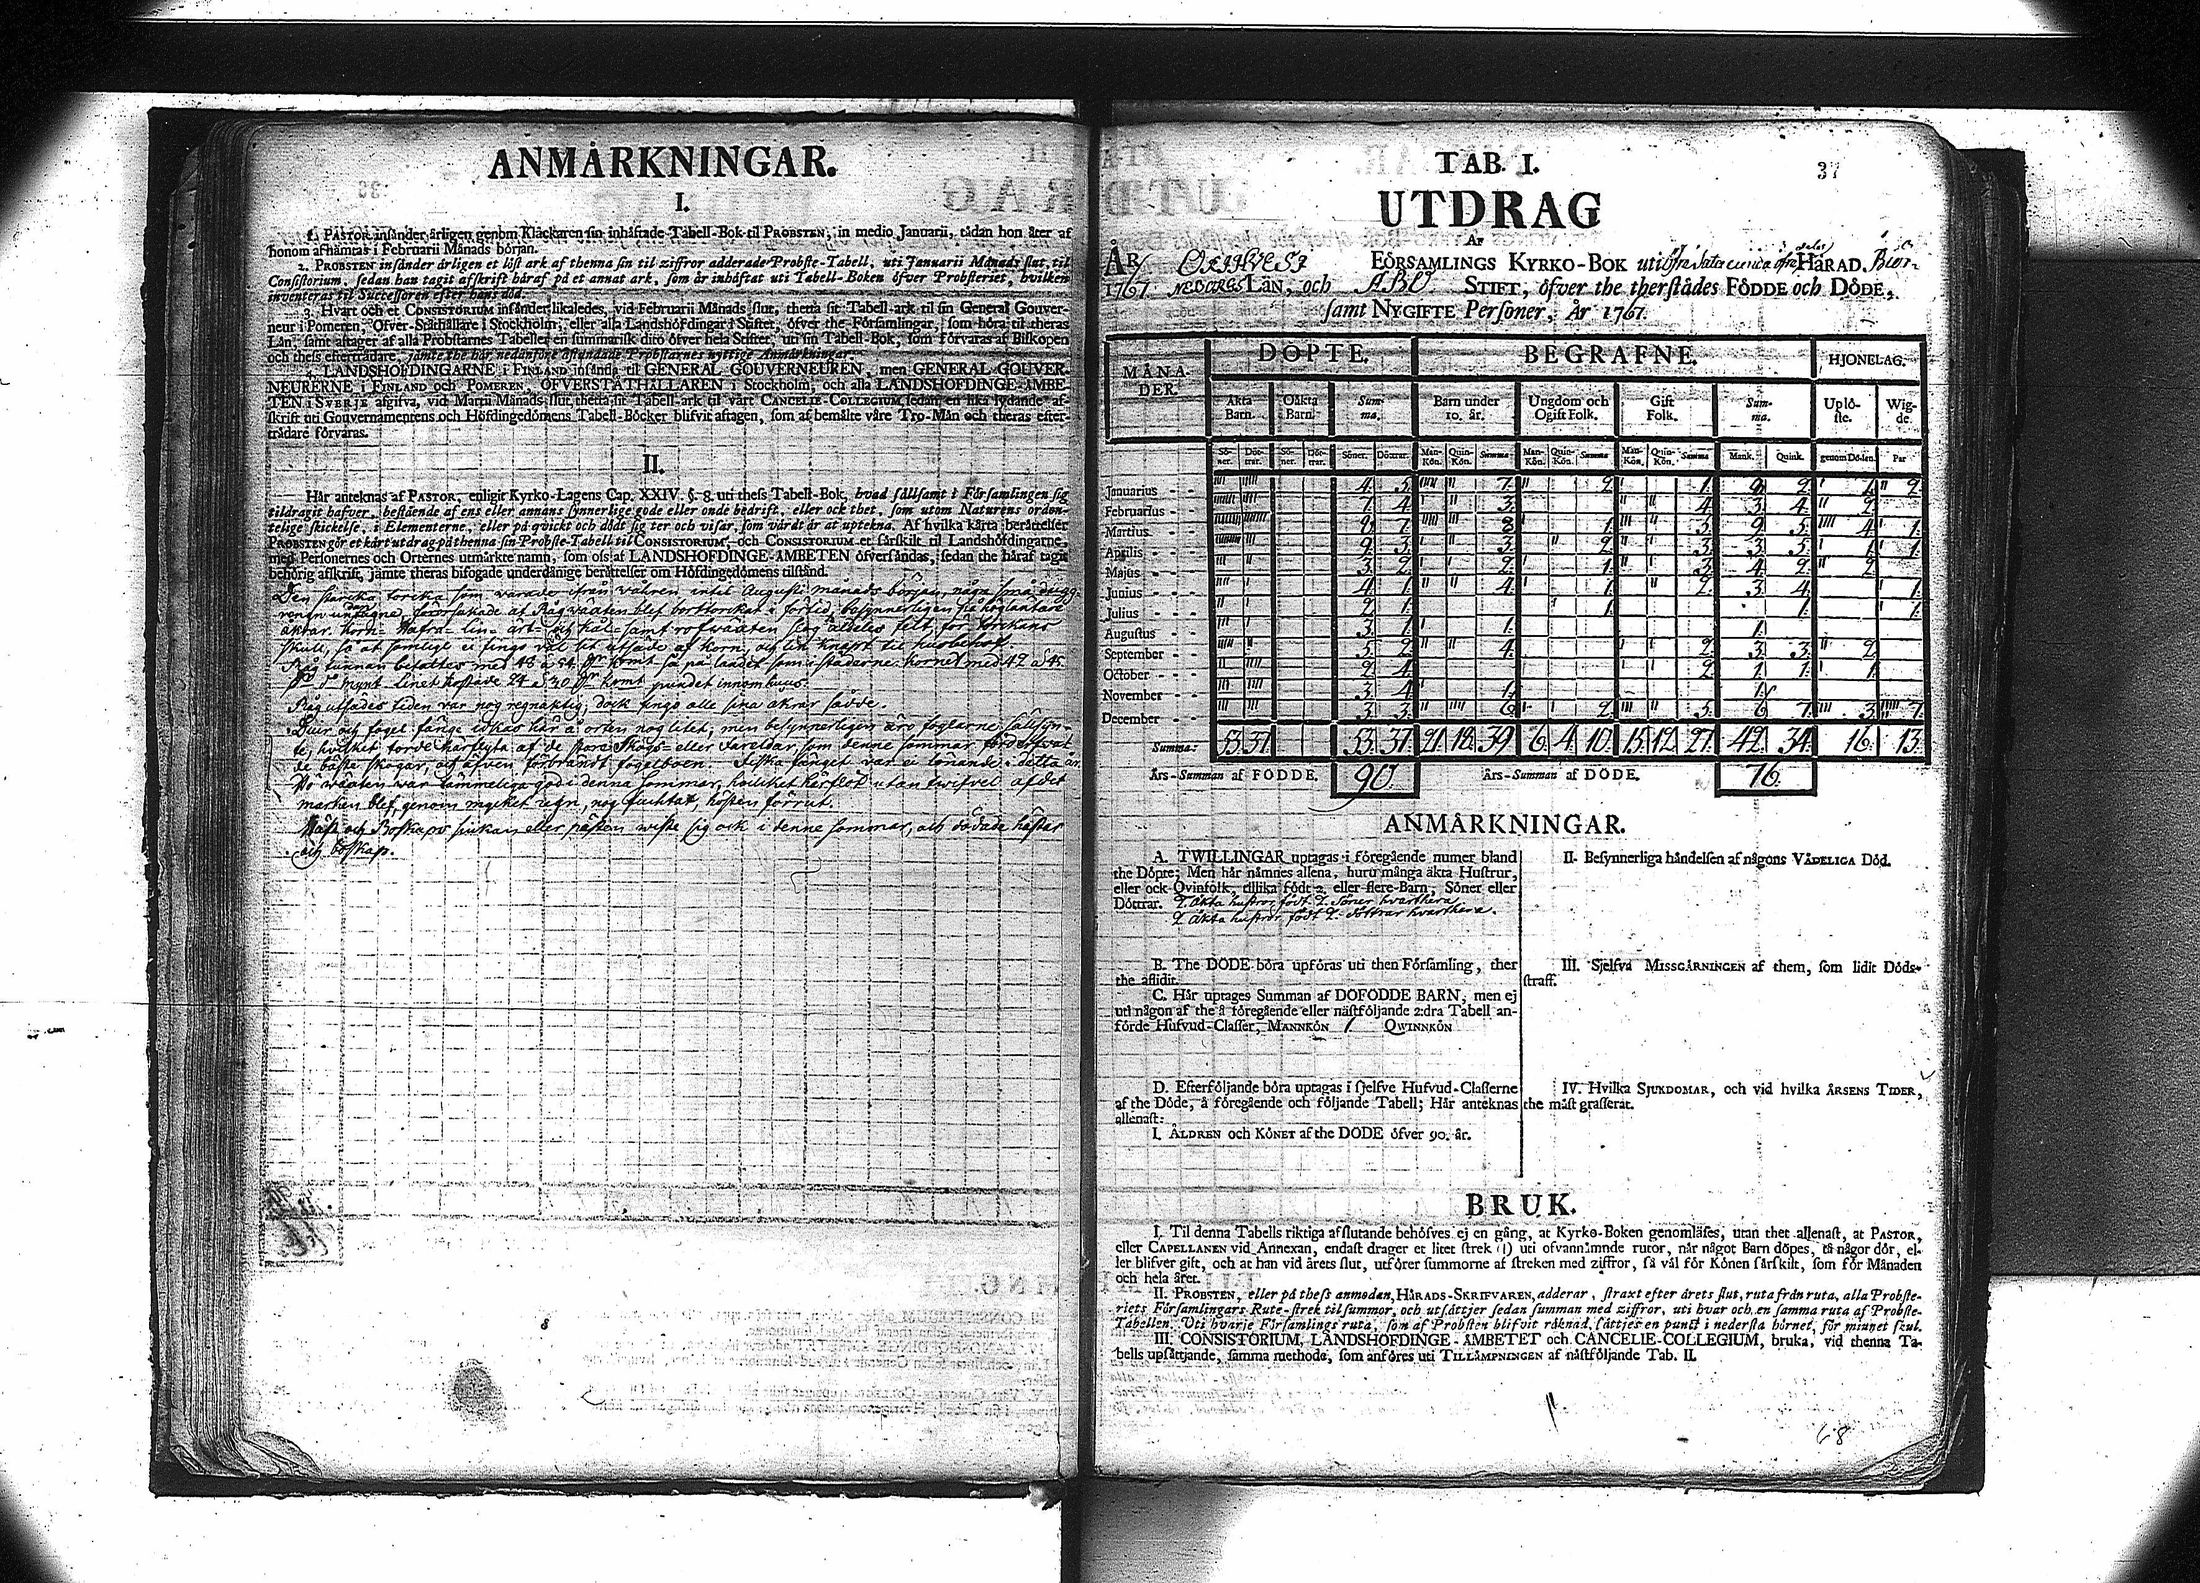 ANMÅRKNINGAR.
I.
1. PASTOR insånder årligen genom Klåckaren sin inhåftade Tabell-Bok til PROBSTEN, in medio Januarii, tådan hon åter af
honom afhåmtas i Februarii Månads början.
2. PROBSTEN insånder årligen et löst ark af thenna sin til ziffror adderade Probste-Tabell, uti Januarii Månads slut, til
Consistorium, sedan han tagit afskrift håraf på et annat ark, som år inhåftat uti Tabell-Boken öfver Probsteriet, hvilken
inventeras til Successoren efter hans död.
3. Hvart och et CONSISTORIUM insånder likaledes, vid Februarii Månads slut, thetta sit Tabell-ark til sin General Gouver-
neur i Pomeren, Öfver-Ståthållare i Stockholm, eller alla Landshöfdingar i Stiftet, öfver the Församlingar, som höra til theras
Lån, samt aftager af alla Probstarnes Tabeller en summarisk dito öfver hela Stiftet, uti sin Tabell-Bok, som förvaras af Biskopen
och thess eftertrådare, jämte the hår nedanföre åstundade Probstarnes nyttige Anmårkningar.
4. LANDSHÖFDINGARNE i FINLAND insånda til GENERAL GOUVERNEUREN, men GENERAL GOUVER-
NEURERNE i FINLAND och POMEREN, ÖFVERSTÅTHÅLLAREN i Stockholm, och alla LANDSHÖFDINGE-ÅMBE-
TEN i SVERJE afgifva, vid Martii Månads slut, thetta sit Tabell-ark til vårt CANCELIE-COLLEGIUM, sedan en lika lydande af-
skrift uti Gouvernamentens och Höfdingedömens Tabell-Böcker blifvit aftagen, som af bemålte våre Tro-Mån och theras efter-
trådare förvaras.
II.
Hår anteknas af PASTOR, enligit Kyrko-Lagens Cap. XXIV. §. 8. uti thess Tabell-Bok, hvad sållsamt i Församlingen sig
tildragit hafver, bestående af ens eller annans synnerlige gode eller onde bedrift, eller ock thet, som utom Naturens orden-
telige skickelse, i Elementerne, eller på qvickt och dödt sig ter och visar, som vårdt år at uptekna. Af hvilka kårta beråttelser
PROBSTEN gör et kårt utdrag på thenna sin Probste-Tabell til CONSISTORIUM, och CONSISTORIUM et sårskilt til Landshöfdingarne,
med Personernes och Orternes utmårkte namn, som oss af LANDSHÖFDINGE-ÅMBETEN öfversåndas, sedan the håraf tagit
behörig afskrift, jämte theras bifogade underdånige beråttelser om Höfdingedömens tilstånd.
Den starcka torcka som varade ifrån våhren intil Augusti månads början, några små dugg-
regn undantagne, förorsakade at Rågväxten blef borttorckat i förtid, besynnerligen på höglåntare
åkrar. Korn- Hafra- Lin- ärt- och kål- samt rofväxten slog aldeles felt för torckans
skull, så at somlige ei fingo väl sit utsäde af korn, och lin knapt til husbehof.
Råg tunnan betaltes med 48 a 54 Dr komt så på landet som i städerne: kornet med 42 a 45.
Dr Dr mynt. Linet kostade 24 a 30 Dr komt pundet innom huus.
Råg utsädes tiden var nog regnaktig, dock fingo alle sina åkrar sådde.
Diur och fogel fänge idkas här å orten nog litet, men besynnerligen äro foglarne sällsyn-
te, hvilket torde härflyta af de stora skogs- eller vareldar, som denne sommar fördärfvat
de bäste skogar, och äfven förbrändt fogelboen. Fiska fänget var ei lönande i detta år.
Hö växten war tämmeliga god i denna sommar, hvilcket härflöt utan twifvel af det
marken blef, genom mycket regn, nog fucktat, hösten förrut.
Häst och Boskaps siukan eller pästen wiste sig ock i denne sommar, och dödade hästar
och boskap.
TAB. I.
37
UTDRAG
AF
ÅR ORIHVESI FÖRSAMLINGS KYRKO-BOK uti öfre Satacunda öfre delen HÅRAD, Biör-
1767 NEBORGS LÅN, och ABO STIFT, öfver the therstådes FÖDDE och DÖDE,
samt NYGIFTE Personer, År 1767.
MÅNA-DER. DÖPTE. BEGRAFNE. HJONELAG.
Åkta Barn. Oåkta Barn. Sum-ma. Barn under 10. år. Ungdom och Ogift Folk. Gift Folk. Sum-ma. Uplö-ste. Wig-de.
Sö-ner. Döt-trar. Sö-ner. Döt-trar. Söner. Döttrar. Man-Kön. Quin-Kön. Summa Man-Kön. Quin-Kön. Summa Man-Kön. Quin-Kön. Summa Mank. Quink. genom Döden. Par
Januarius 4. 5. 7. 2. 1. 9. 2. 1. 2.
Februarius 7. 4. 3. 4. 3. 4. 2.
Martius 8. 7. 8. 1. 5. 9. 5. 4. 1.
Aprilis 9. 3. 3. 2. 3. 3. 5. 1. 1.
Majus 3. 2. 2. 1. 3. 4. 2. 2.
Junius 4. 1. 4. 2. 3. 4. 1.
Julius 2. 1. 1. 1. 1.
Augustus 3. 1. 1. 1.
September 5. 2. 4. 2. 3. 3. 2.
October 2. 4. 2. 1. 1. 1.
November 3. 4. 1. 1.
December 3. 3. 6. 2. 5. 6. 7. 3. 7.
Summa: 53. 37. 53. 37. 21. 18. 39. 6. 4. 10. 15. 12. 27. 42. 34. 16. 13.
Års-Summan af FÖDDE. 90. Års-Summan af DÖDE. 76.
ANMÅRKNINGAR.
A. TWILLINGAR uptagas i föregående numer bland
the Döpte; Men hår nåmnes allena, huru många åkta Hustrur,
eller ock Qvinfolk, tillika födt 2. eller flere Barn, Söner eller
Döttrar. 2. äkta hustror födt 2. Söner hvarthera
2 äkta hustror födt 2. döttrar hvarthera.
B. The DÖDE böra upföras uti then Församling, ther
the aflidit.
C. Hår uptages Summan af DÖFÖDDE BARN, men ej
uti någon af the å föregående eller nåstföljande 2:dra Tabell an-
förde Hufvud-Classer, MANNKÖN 1 QWINNKÖN
D. Efterföljande böra uptagas i sjelfve Hufvud-Classerne
af the Döde, å föregående och följande Tabell; Hår anteknas
allenast:
I. ÅLDREN och KÖNET af the DÖDE öfver 90. år.
II. Besynnerliga håndelsen af någons VÅDELIGA Död.
III. Sjelfva MISSGÅRNINGEN af them, som lidit Döds-
straff.
IV. Hvilka SJUKDOMAR, och vid hvilka ÅRSENS TIDER,
the måst grasserat.
BRUK.
I. Til denna Tabells riktiga afslutande behöfves ej en gång, at Kyrko-Boken genomlåses, utan thet allenast, at PASTOR,
eller CAPELLANEN vid Annexan, endast drager et litet strek (|) uti ofvannåmnde rutor, når något Barn döpes, tå någor dör, el-
ler blifver gift, och at han vid årets slut, utförer summorne af streken med ziffror, så vål för Könen sårskilt, som för Månaden
och hela året.
II. PROBSTEN, eller på thess anmodan, HÅRADS-SKRIFVAREN, adderar, straxt efter årets slut, ruta från ruta, alla Probste-
riets Församlingars Rute-strek til summor, och utsåttjer sedan summan med ziffror, uti hvar och en samma ruta af Probste-
Tabellen. Uti hvarje Församlings ruta, som af Probsten blifvit råknad, såttjes en punkt i nedersta hörnet, för minnet skul.
III. CONSISTORIUM, LANDSHÖFDINGE-ÅMBETET och CANCELIE-COLLEGIUM, bruka, vid thenna Ta-
bells upsåttjande, samma methode, som anföres uti TILLÅMPNINGEN af nåstföljande Tab. II.
68